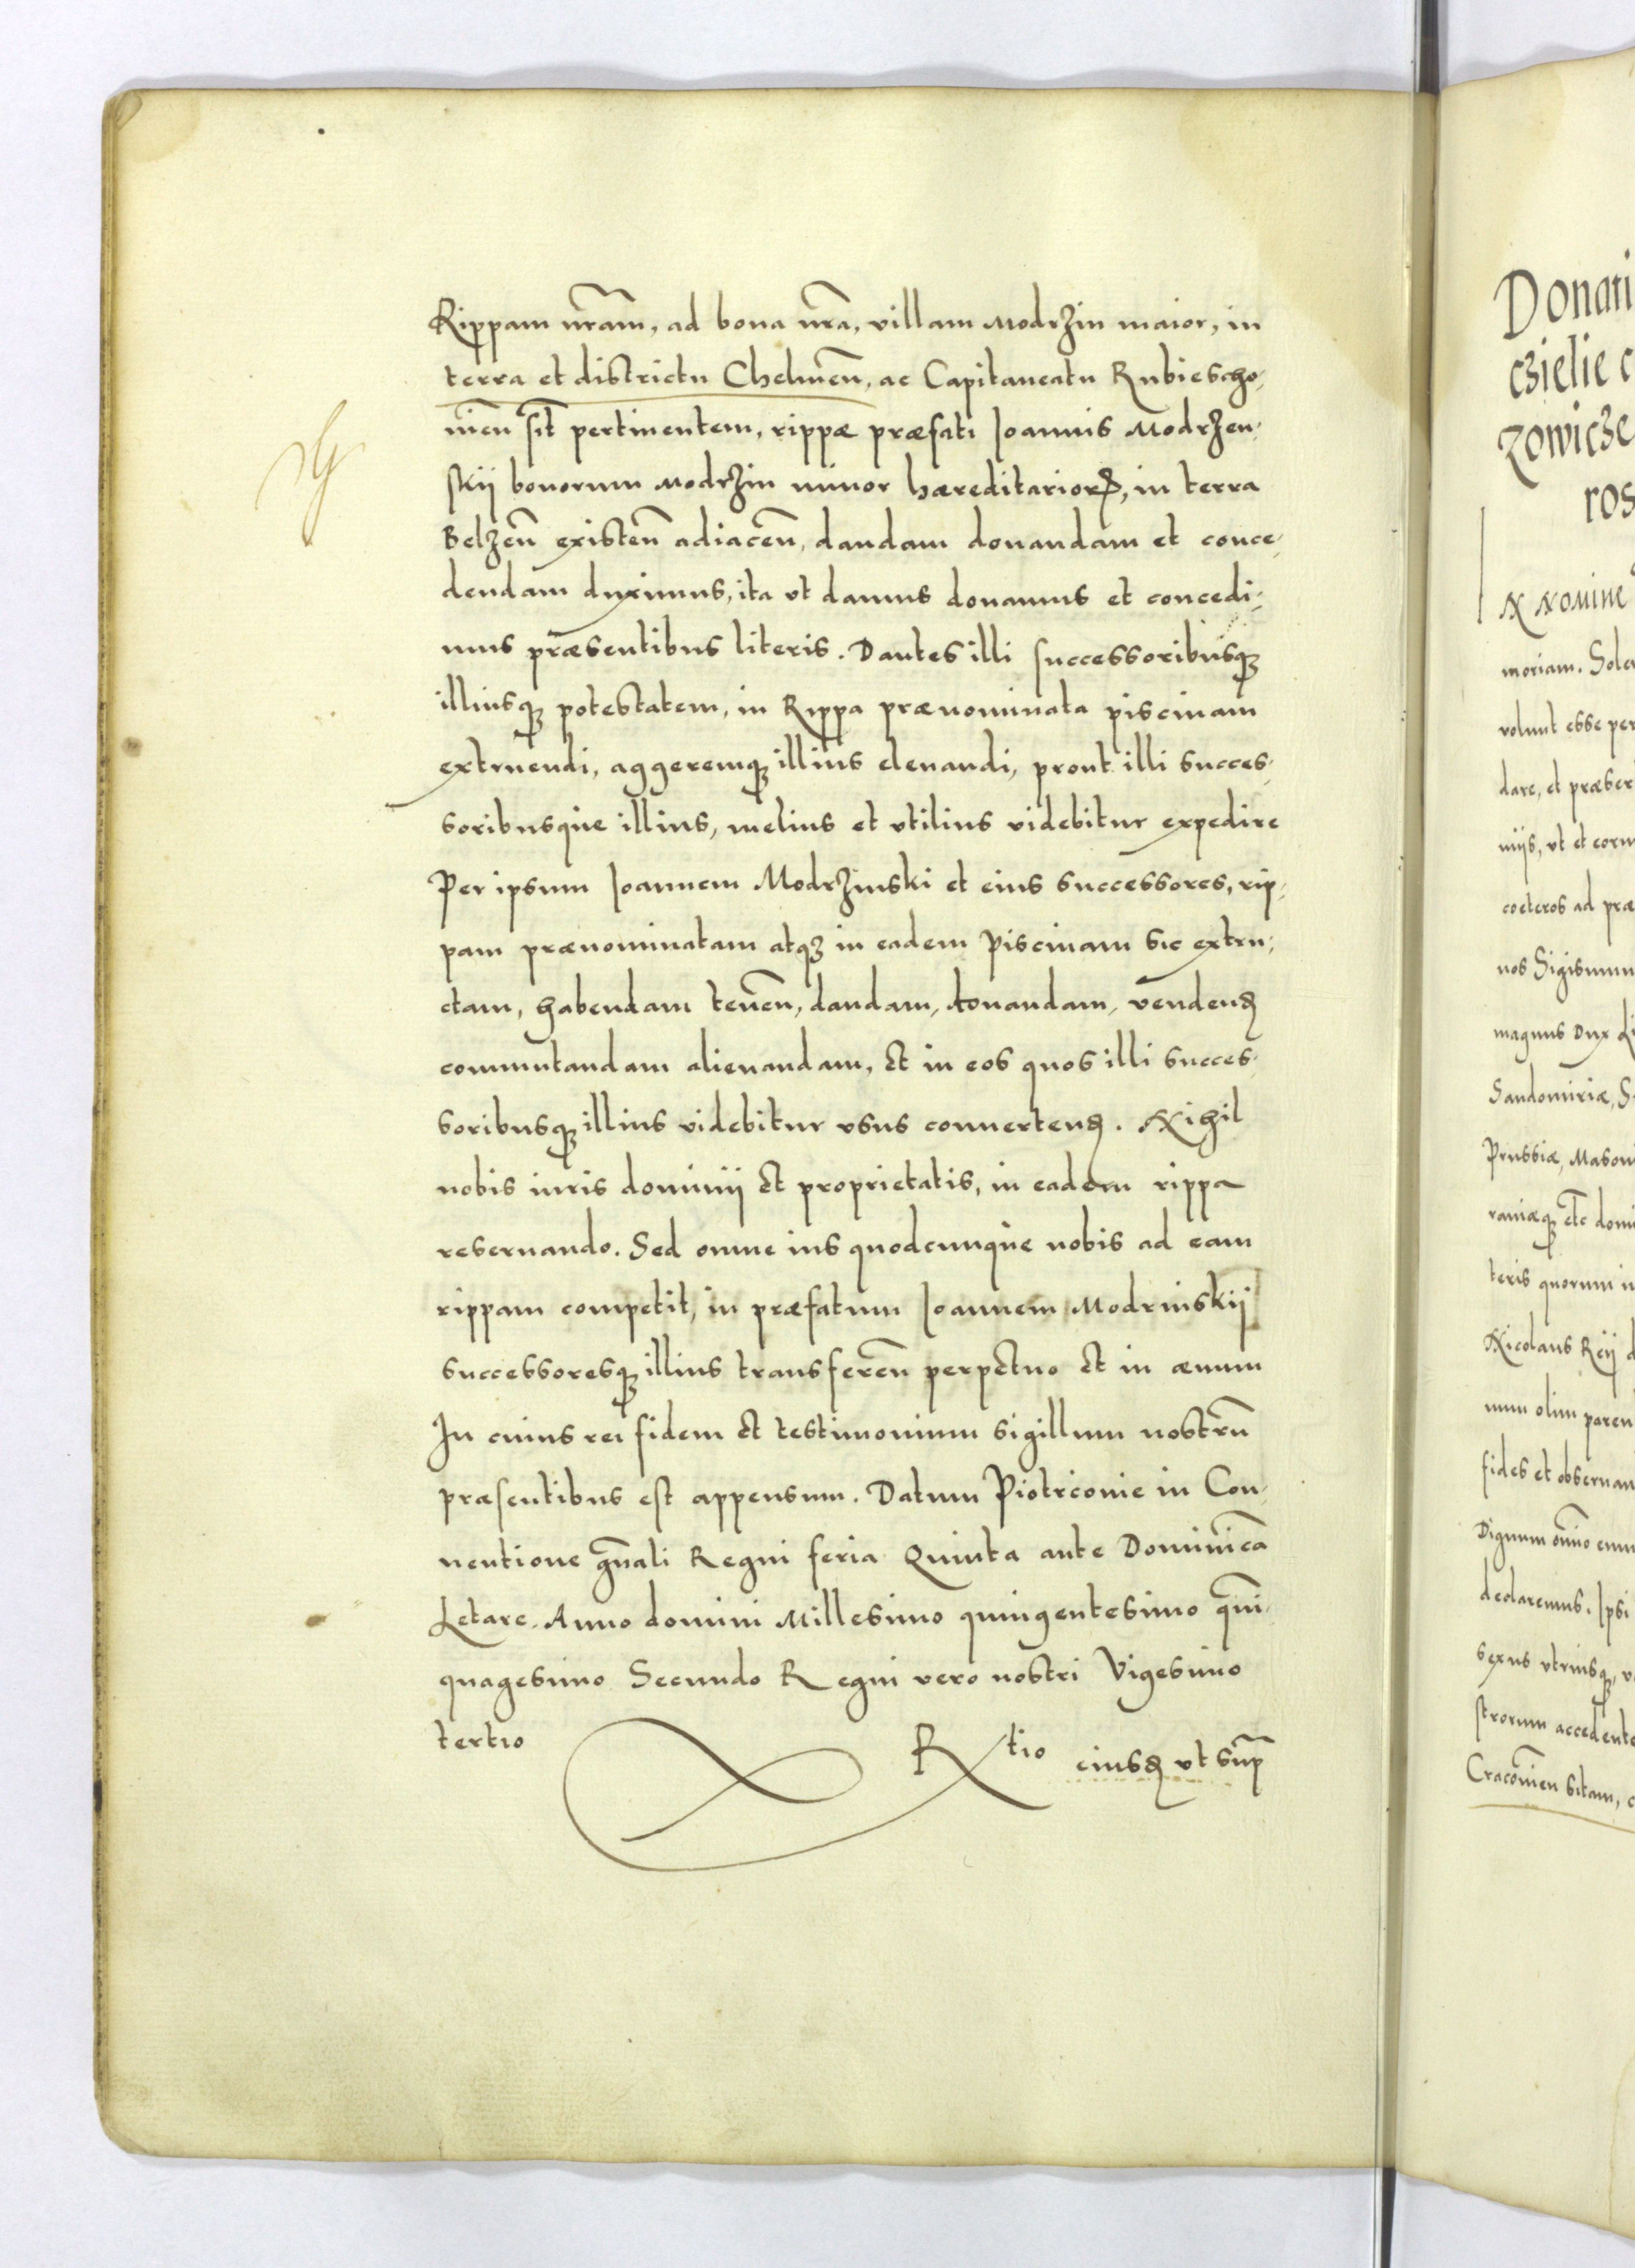 Rippam nr̃am, ad bona nr̃a, villam Modrzin maior, in
terra et districtu Chelmeñ, ac Capitaneatu Rubiescho-
uieñ sit pertinentem, rippæ præfati Ioannis Modrzen-
skij bonorum Modrzin minor hæreditarioꝝ, in terra
Belzeñ existeñ adiaceñ, dandam donandam et conce-
dendam duximus, ita vt damus donamus et concedi-
mus præsentibus literis. Dantes illi successoribusqꝫ
illiusqꝫ potestatem, in Rippa prænominata piscinam
extruendi, aggeremqꝫ illius eleuandi, prout illi succes-
soribusque illius, melius et vtilius videbitur expedire
Per ipsum Ioannem Modrzinski et eius successores, rip-
pam prænominatam atqꝫ in eadem piscinam sic extru-
ctam, habendam teneñ, dandam, donandam, vendenꝺ
commutandam alienandam, et in eos quos illi succes-
soribusqꝫ illius videbitur vsus conuertenꝺ. Nihil
nobis iuris dominij et proprietatis, in eadem rippa
reseruando. Sed omne ius quodcunque nobis ad eam
rippam competit, in præfatum Ioannem Modrinskij
successoresqꝫ illius transfereñ perpetuo et in æuum
In cuius rei fidem et testimonium sigillum nostrũ
præsentibus est appensum. Datum Piotrconie in Con-
uentione gñali Regni feria Quinta ante Dominicã
Letare. Anno domini Millesimo quingentesimo qũin-
quagesimo Secundo Regni vero nostri Vigesimo
tertio
Rtio eiusꝺ vt sup̃
Donati
czielie c
zowicze
ros
N nomine
moriam. Sole
volunt esse per
dare, et præser
niis, vt et eoru
coeteros ad præ
nos Sigismun
magnus Dux Li
Sandomiriæ, S
Prussiæ, Masoui
raniæqꝫ etc̃ domi
teris quorum in
Nicolaus Reij d
mum olim paren
fides et obseruan
Dignum om̃ino enim
declaremus. Ipsi
sexus vtriusqꝫ, v
strorum accedente
Cracouieñ sitam, c